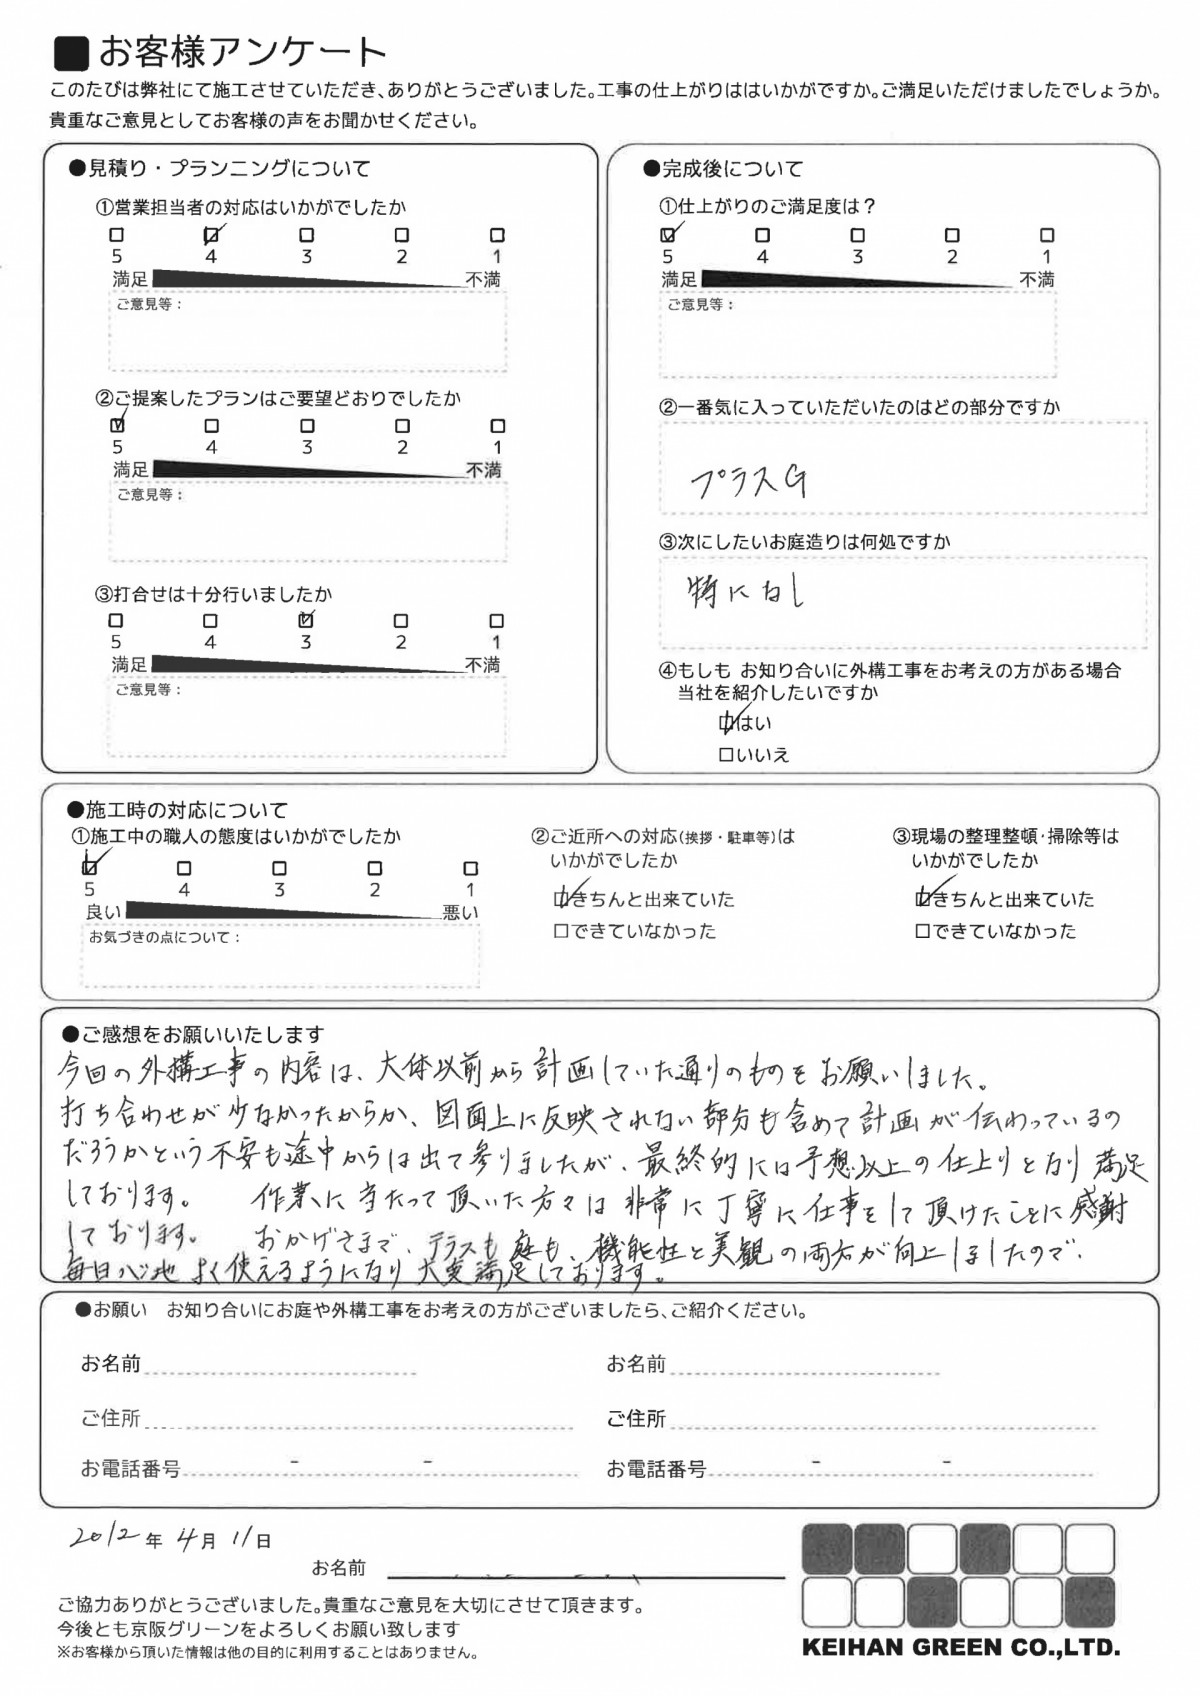 ■お客様アンケート
このたびは弊社にて施工させていただき、ありがとうございました。工事の仕上がりははいかがですか。ご満足いただけましたでしょうか。
貴重なご意見としてお客様の声をお聞かせください。
●見積り・プランニングについて
①営業担当者の対応はいかがでしたか
□ ☑ □ □ □
5 4 3 2 1
満足 不満
ご意見等：
②ご提案したプランはご要望どおりでしたか
☑ □ □ □ □
5 4 3 2 1
満足 不満
ご意見等：
③打合せは十分行いましたか
□ □ ☑ □ □
5 4 3 2 1
満足 不満
ご意見等：
●完成後について
①仕上がりのご満足度は？
☑ □ □ □ □
5 4 3 2 1
満足 不満
ご意見等：
②一番気に入っていただいたのはどの部分ですか
プラスG
③次にしたいお庭造りは何処ですか
特になし
④もしも お知り合いに外構工事をお考えの方がある場合
当社を紹介したいですか
☑はい
□いいえ
●施工時の対応について
①施工中の職人の態度はいかがでしたか
☑ □ □ □ □
5 4 3 2 1
良い 悪い
お気づきの点について：
②ご近所への対応(挨拶・駐車等)は
いかがでしたか
☑きちんと出来ていた
□できていなかった
③現場の整理整頓・掃除等は
いかがでしたか
☑きちんと出来ていた
□できていなかった
●ご感想をお願いいたします
今回の外構工事の内容は、大体以前から計画していた通りのものをお願いしました。
打ち合わせが少なかったからか、図面上に反映されない部分も含めて計画が伝わっているの
だろうかという不安も途中からは出て参りましたが、最終的には予想以上の仕上りとなり満足
しております。 作業に当たって頂いた方々は非常に丁寧に仕事をして頂けたことに感謝
しております。 おかげさまで、テラスも庭も、機能性と美観の両方が向上しましたので、
毎日心地よく使えるようになり大変満足しております。
●お願い お知り合いにお庭や外構工事をお考えの方がございましたら、ご紹介ください。
お名前 お名前
ご住所 ご住所
お電話番号 - - お電話番号 - -
2012年4月11日
お名前
ご協力ありがとうございました。貴重なご意見を大切にさせて頂きます。
今後とも京阪グリーンをよろしくお願い致します
※お客様から頂いた情報は他の目的に利用することはありません。
KEIHAN GREEN CO.,LTD.